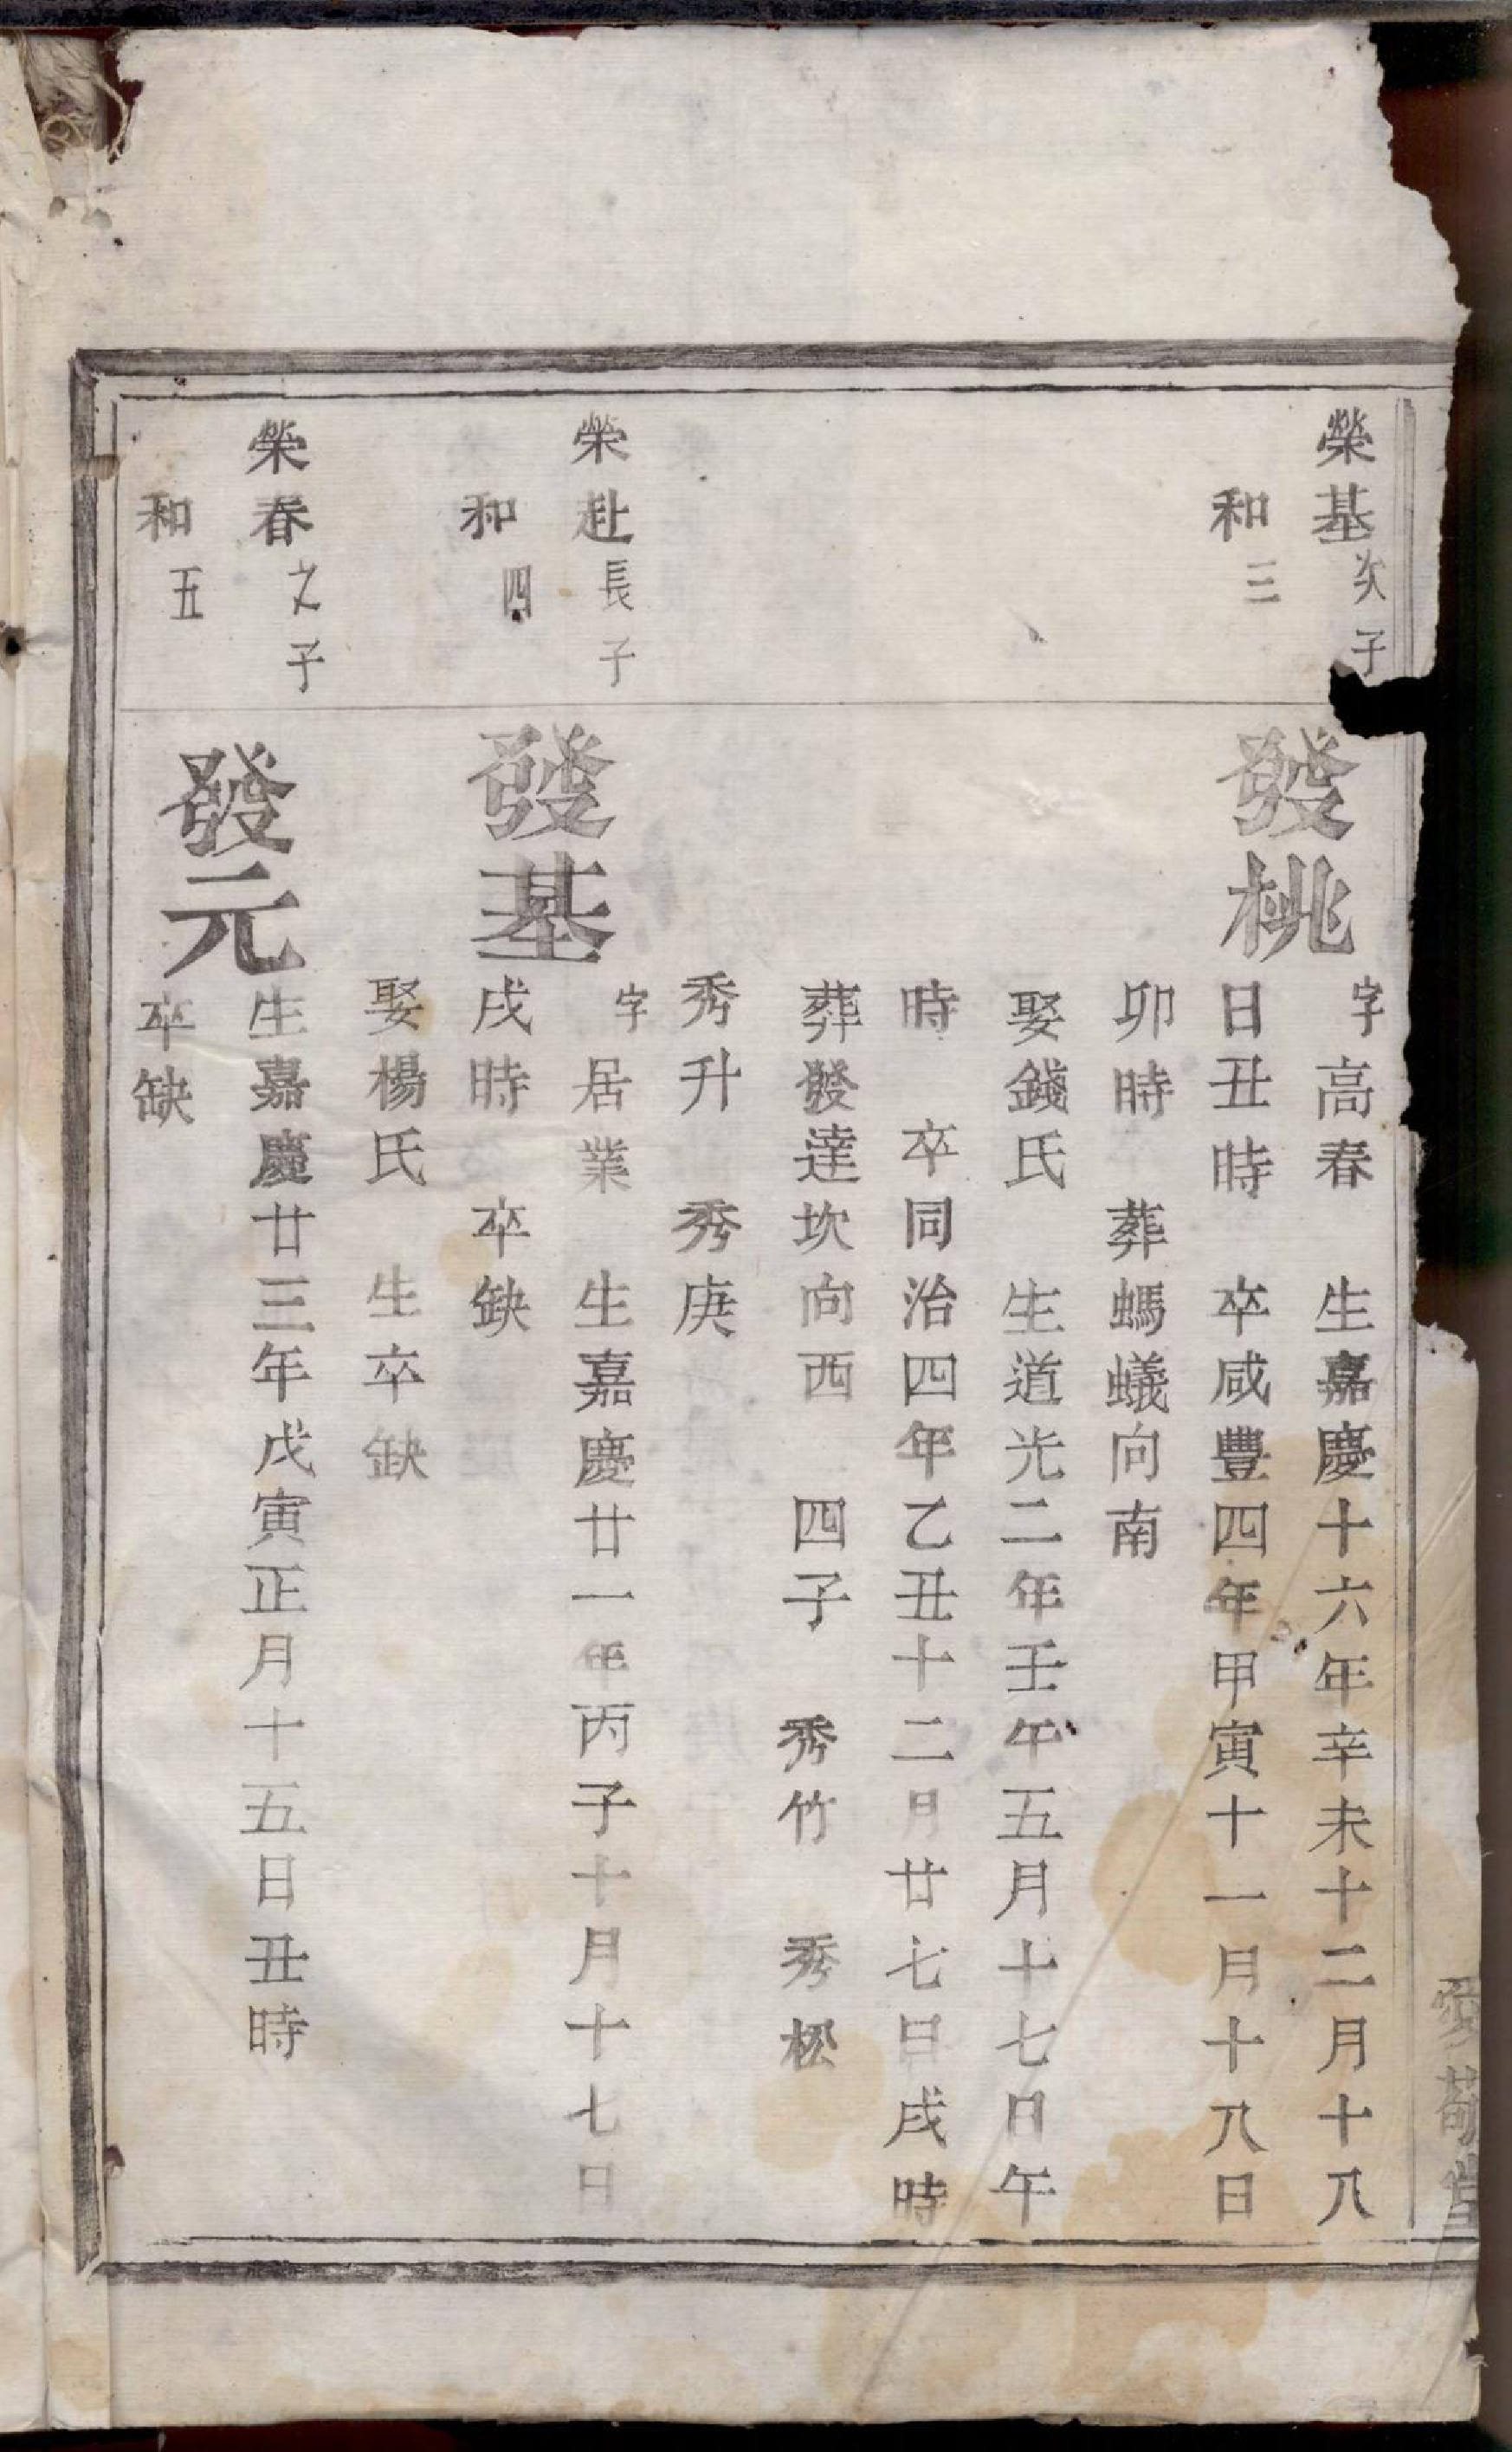 榮基次子
和三
發桃
字高春 生嘉慶十六年辛未十二月十八
日丑時 卒咸豐四年甲寅十一月十八日
卯時 葬螞蟻向南
娶錢氏 生道光二年壬午五月十七日午
時 卒同治四年乙丑十二月廿七日戌時
葬發達坎向西 四子 秀竹 秀松
秀升 秀庚
榮赴長子
和四
發基
字居業 生嘉慶廿一年丙子十月十七日
戌時 卒缺
娶楊氏 生卒缺
榮春之子
和五
發元
生嘉慶廿三年戊寅正月十五日丑時
卒缺